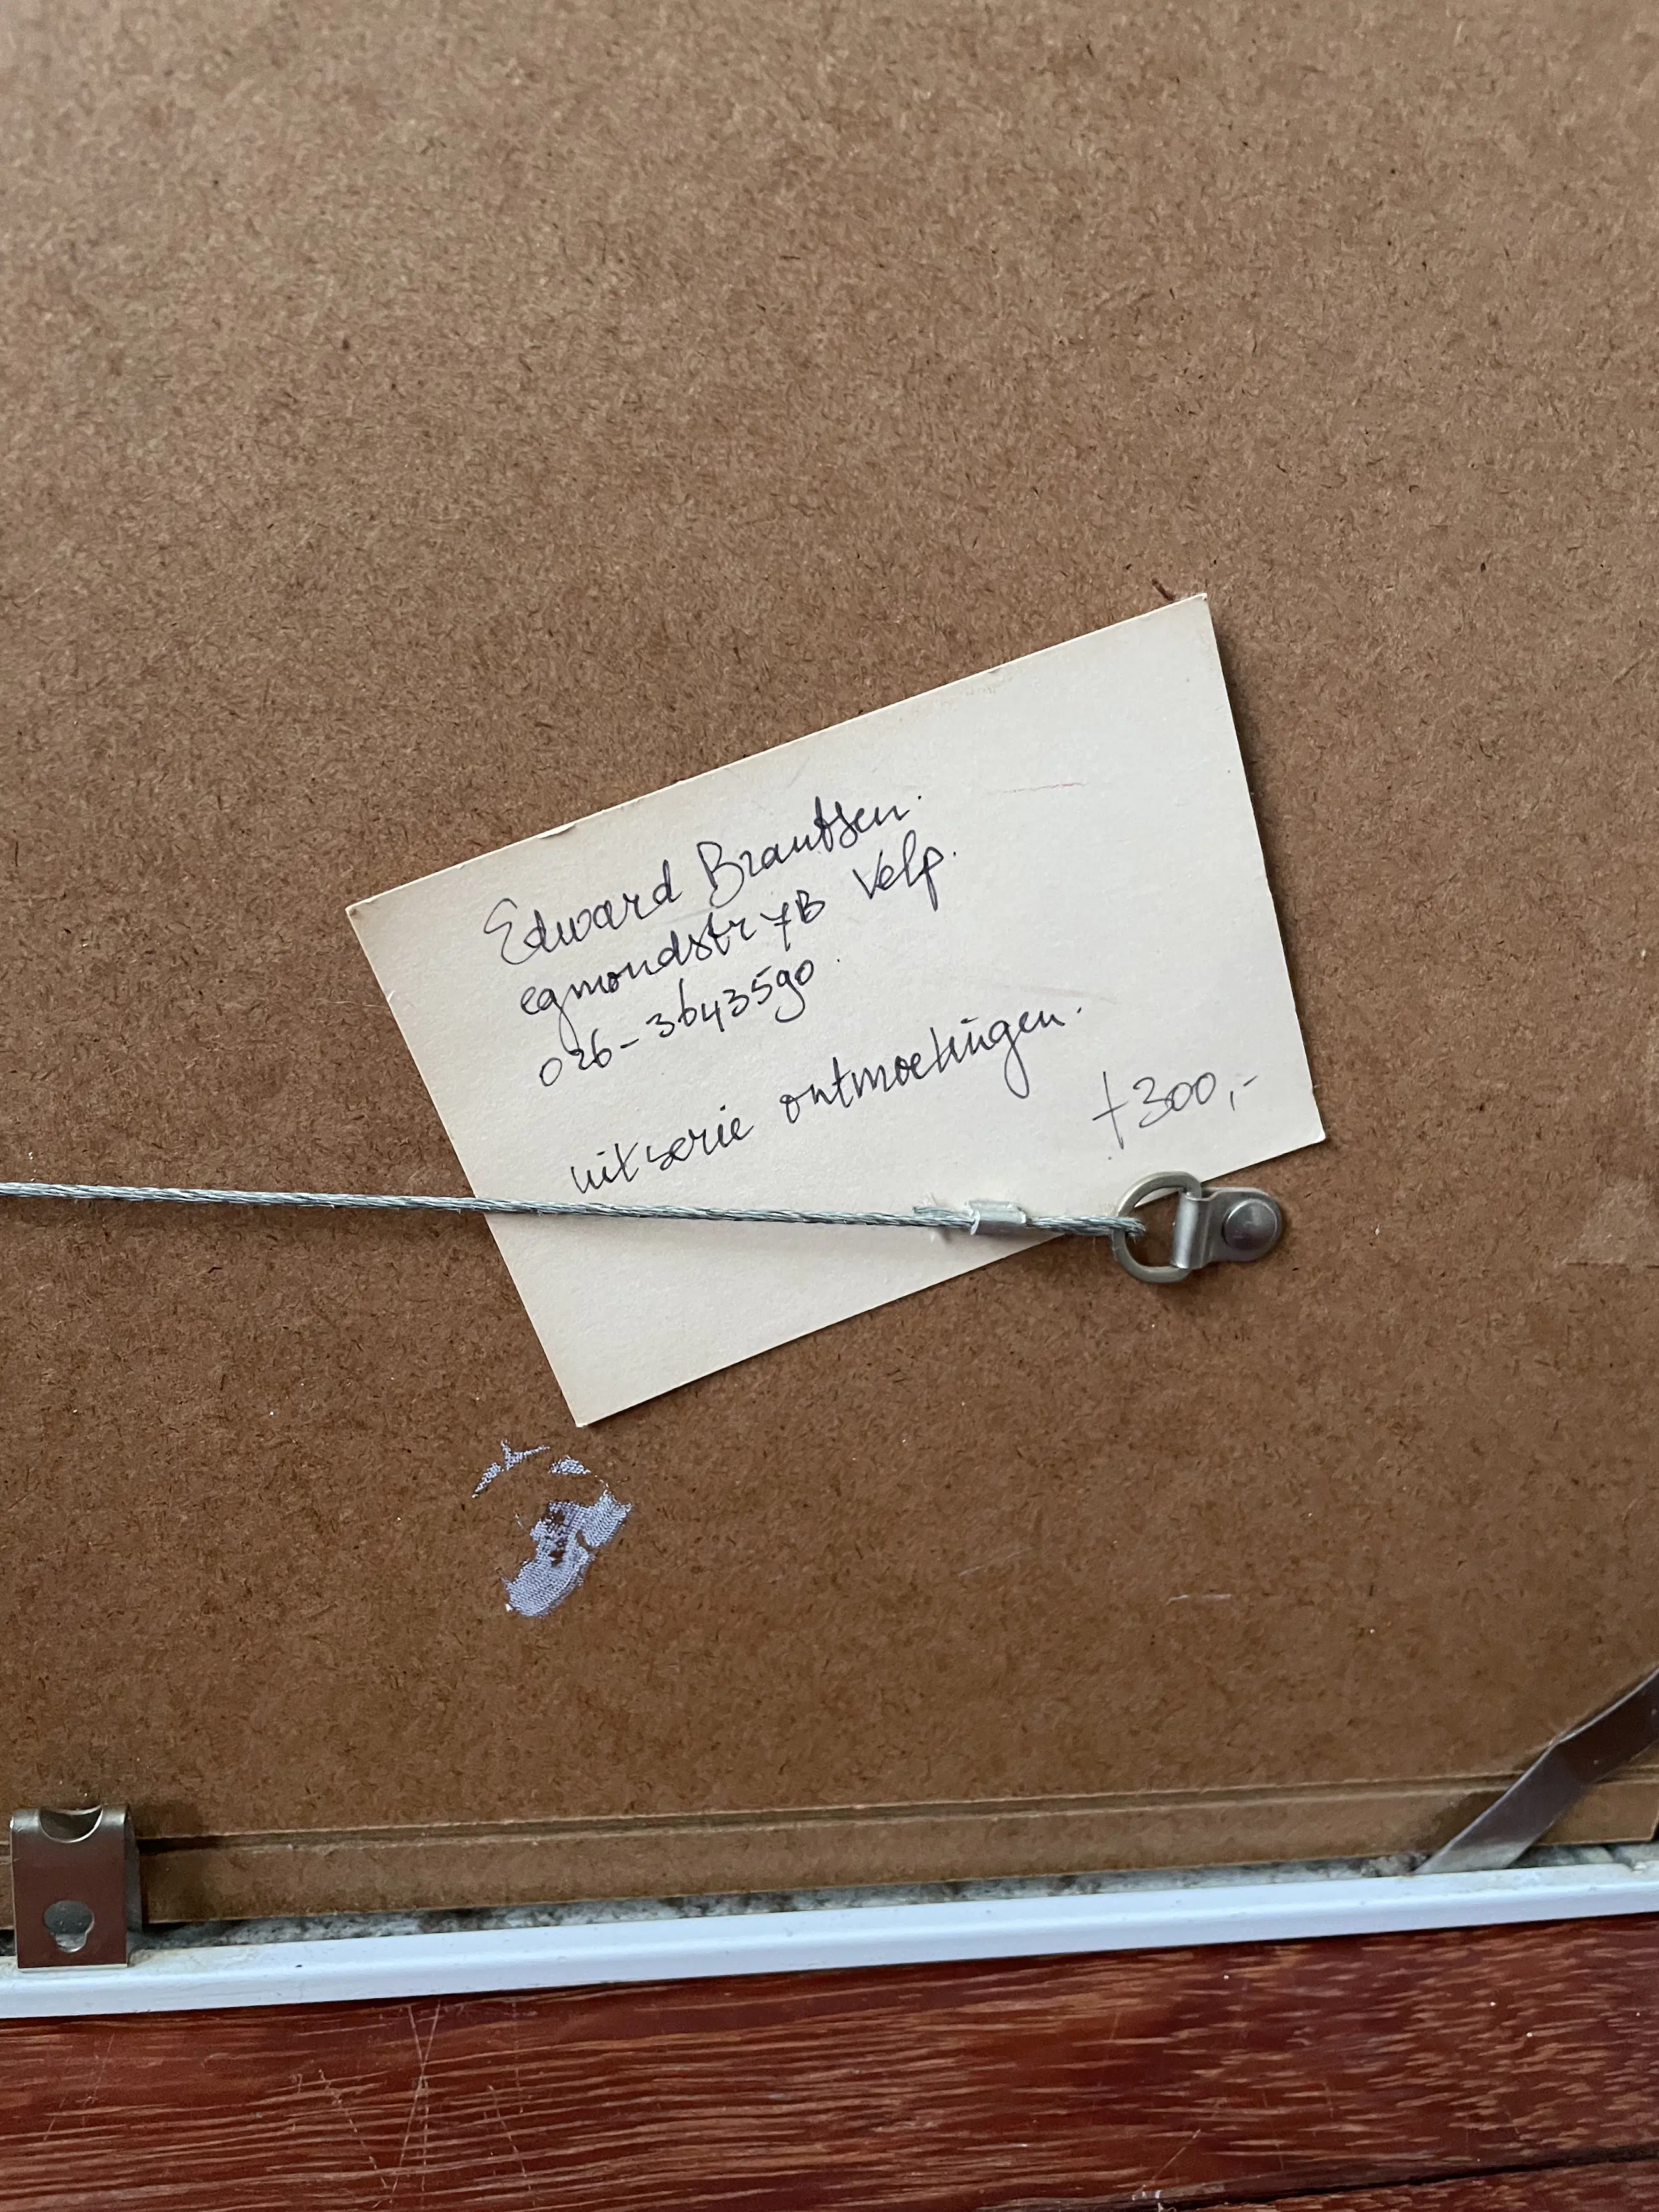 Edward Brantsen.
egmondstr 7B Velp.
026-3643590.
uit serie ontmoetingen.
f 300,-